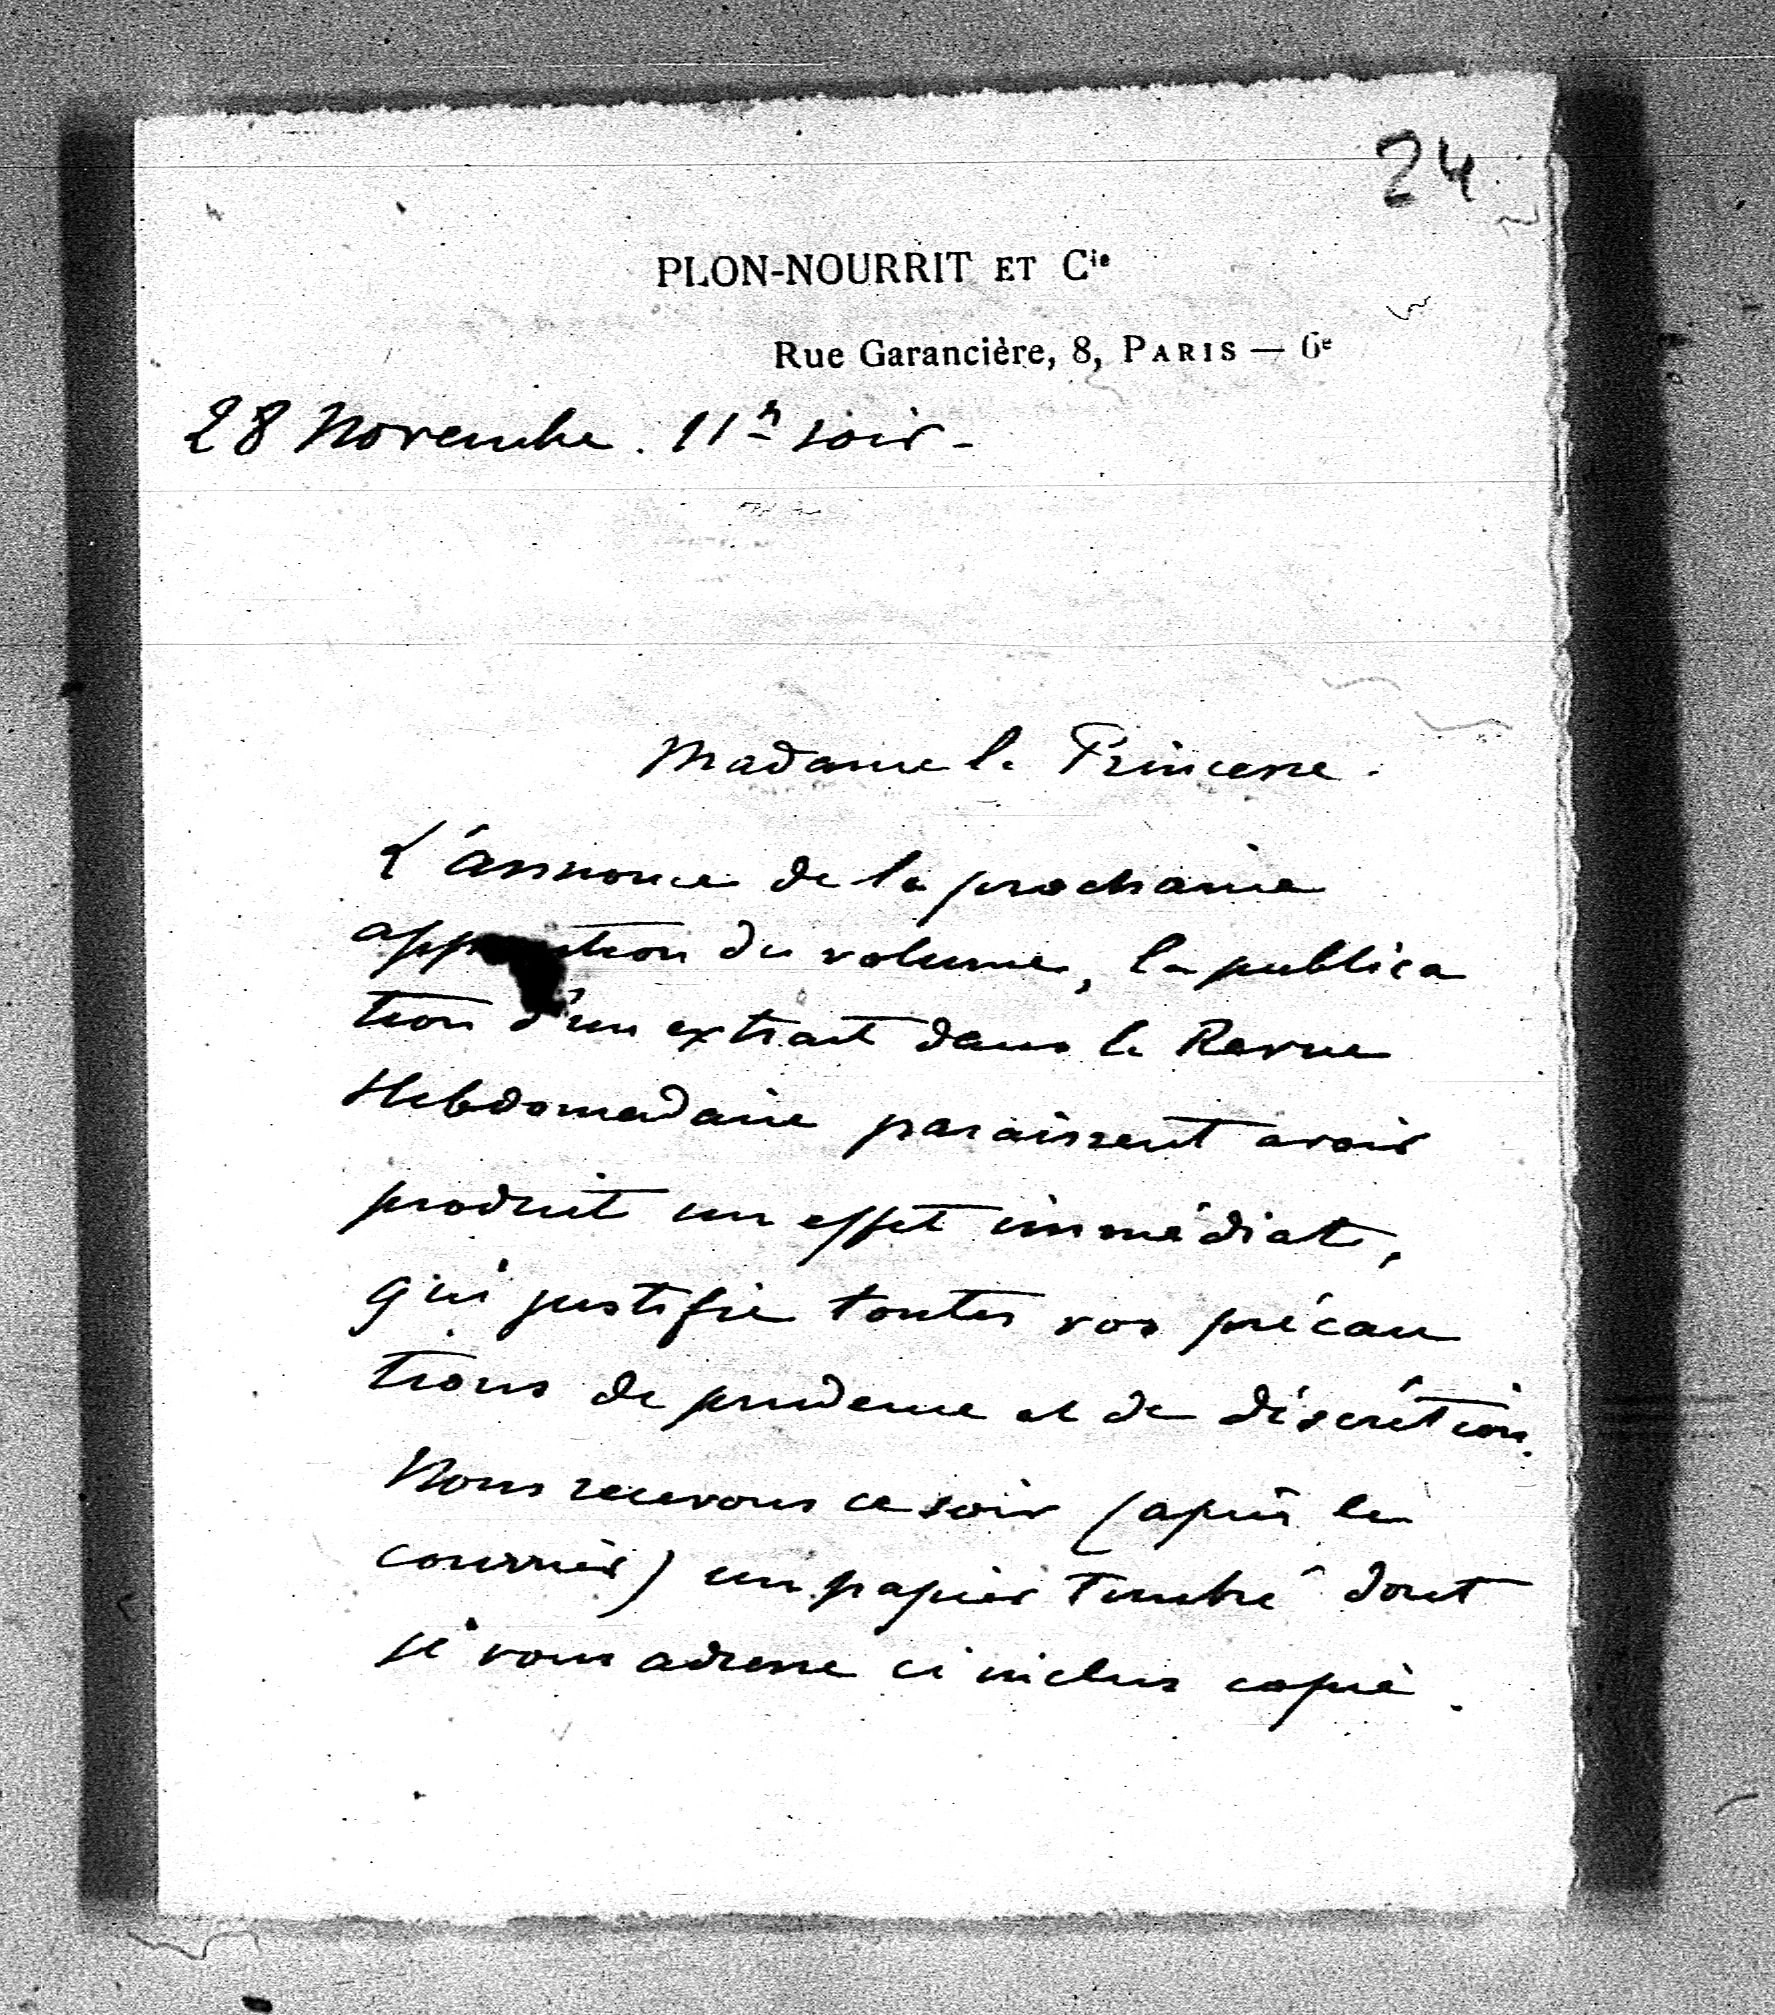 24
PLON-NOURRIT ET Cie
Rue Garancière, 8, PARIS — 6e
28 Novembre. 11h soir -
Madame la Princesse.
L'annonce de la prochaine
apparition du volume, la publica
tion d'un extrait dans la Revue
Hebdomadaire paraissent avoir
produit un effet immédiat,
qui justifie toutes vos précau
tions de prudence et de discrétion.
Nous recevons ce soir (après le
courrier) un papier timbré dont
je vous adresse ci inclus copie.